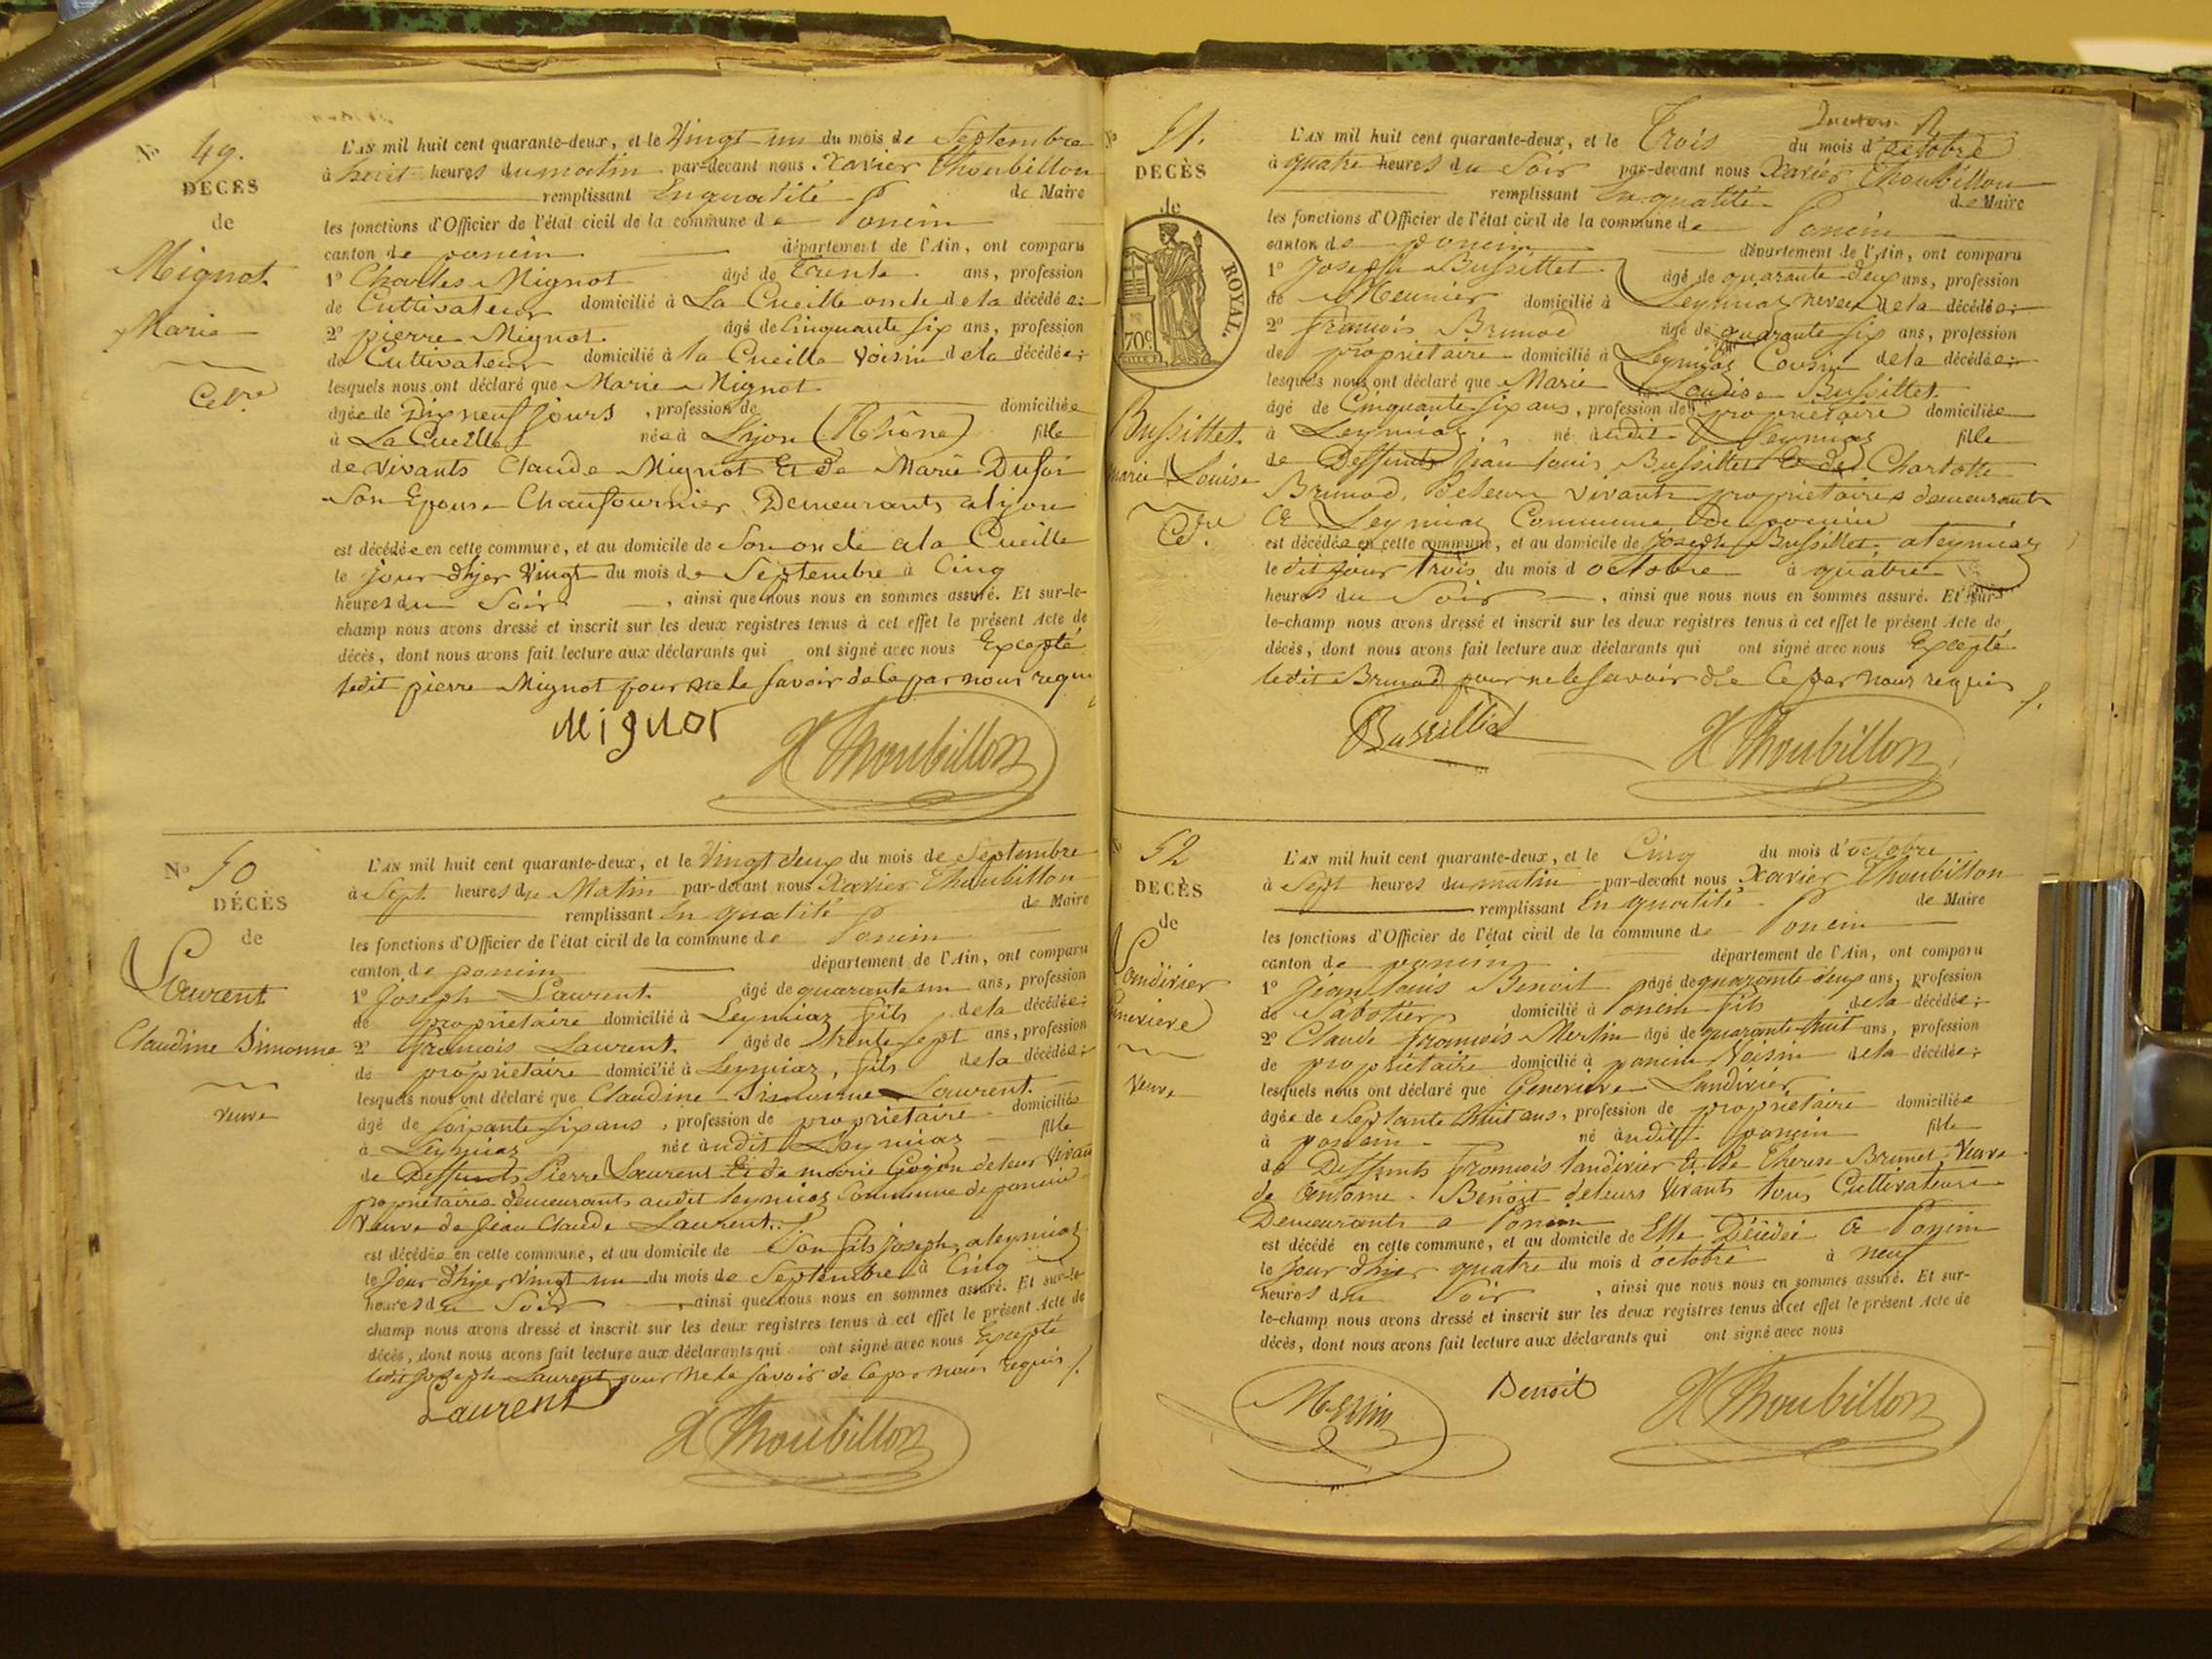 N° 49.
DÉCÈS
de
Mignot
Marie
Cel.re
L'AN mil huit cent quarante-deux, et le Vingt un du mois de Septembre
à huit heures du matin par-devant nous Xavier Thoubillon
remplissant En qualité de Maire
les fonctions d'Officier de l'état civil de la commune de Poncin
canton de poncin département de l'Ain, ont comparu
1° Charles Mignot âgé de trente ans, profession
de Cultivateur domicilié à La Cueille oncle de la décédée;
2° pierre Mignot âgé de Cinquante six ans, profession
de Cultivateur domicilié à la Cueille Voisin de la décédée;
lesquels nous ont déclaré que Marie Mignot
âgée de Dix neuf jours, profession de domiciliée
à La Cueille née à Lyon (Rhône) fille
de vivants Claude Mignot Et de Marie Dufoir
Son Epouse Chaufournier Demeurants a lyon
est décédée en cette commune, et au domicile de Son oncle a la Cueille
le jour d'hyer Vingt du mois de Septembre à Cinq
heures du Soir, ainsi que nous nous en sommes assuré. Et sur-le-
champ nous avons dressé et inscrit sur les deux registres tenus à cet effet le présent Acte de
décès, dont nous avons fait lecture aux déclarants qui ont signé avec nous Excepté
ledit pierre Mignot pour ne le Savoir de Ce par nous requis
Mignot
X Thoubillon
N° 50
DÉCÈS
de
Laurent
Claudine Simonne
veuve
L'AN mil huit cent quarante-deux, et le Vingt deux du mois de Septembre
à Sept heures du Matin par-devant nous Xavier Thoubillon
remplissant En qualité de Maire
les fonctions d'Officier de l'état civil de la commune de Poncin
canton de poncin département de l'Ain, ont comparu
1° Joseph Laurent âgé de quarante un ans, profession
de propriétaire domicilié à Leymiaz fils de la décédée;
2° François Laurent âgé de trente sept ans, profession
de propriétaire domicilié à Leymiaz, fils de la décédée;
lesquels nous ont déclaré que Claudine Simonne Laurent
âgé de Soixante six ans, profession de propriétaire domiciliée
à Leymiaz née audit Leymiaz fille
de Deffunts Pierre Laurent Et de marie Gojon de leur Vivant
propriétaires demeurants audit leymiaz Commune de poncin
Veuve de Jean Claude Laurent
est décédée en cette commune, et au domicile de Son fils joseph, a leymiaz
le jour d'hyer vingt un du mois de Septembre à Cinq
heures du Soir, ainsi que nous nous en sommes assuré. Et sur-le-
champ nous avons dressé et inscrit sur les deux registres tenus à cet effet le présent Acte de
décès, dont nous avons fait lecture aux déclarants qui ont signé avec nous Excepté
ledit Joseph Laurent pour ne le Savoir de Ce par nous requis
Laurent
X Thoubillon
N° 51.
DÉCÈS
de
ROYAL.
70c
Bussillet
Marie Louise
Cel.re
L'AN mil huit cent quarante-deux, et le Trois du mois d'octobre
à quatre heures du Soir par-devant nous Xavier Thoubillon
remplissant En qualité de Maire
les fonctions d'Officier de l'état civil de la commune de Poncin
canton de poncin département de l'Ain, ont comparu
1° Joseph Bussillet âgé de quarante deux ans, profession
de Meunier domicilié à Leymiaz neveu de la décédée;
2° françois Brunod âgé de quarante six ans, profession
de propriétaire domicilié à Leymiaz Cousin de la décédée;
lesquels nous ont déclaré que Marie Louise Bussillet
âgé de Cinquante six ans, profession de propriétaire domiciliée
à Leymiaz né audit Leymiaz fille
de Deffunts Jean louis Bussillet Et de Charlotte
Brunod, de leurs vivants propriétaires demeurants
a Leymiaz Commune de poncin
est décédée en cette commune, et au domicile de Joseph Bussillet a leymiaz
le dit jour trois du mois d octobre à quatre
heures du Soir, ainsi que nous nous en sommes assuré. Et sur-
le-champ nous avons dressé et inscrit sur les deux registres tenus à cet effet le présent Acte de
décès, dont nous avons fait lecture aux déclarants qui ont signé avec nous Excepté
ledit Brunod pour ne le Savoir de Ce par nous requis
Bussilliet
X Thoubillon
N° 52
DÉCÈS
de
Landivier
Genevieve
Veuve
L'AN mil huit cent quarante-deux, et le Cinq du mois d'octobre
à Sept heures du matin par-devant nous Xavier Thoubillon
remplissant En qualité de Maire
les fonctions d'Officier de l'état civil de la commune de Poncin
canton de poncin département de l'Ain, ont comparu
1° Jean louis Benoit âgé de quarante deux ans, profession
de Sabotier domicilié à Poncin fils de la décédée;
2° Claude françois Merlin âgé de quarante huit ans, profession
de propriétaire domicilié à poncin Voisin de la décédée;
lesquels nous ont déclaré que Genevieve Landivier
âgée de Septante huit ans, profession de propriétaire domiciliée
à poncin né audit poncin fille
de Deffunts François landivier Et de Therese Brunet Veuve
de Antoine Benoit de leurs Vivants tous Cultivateurs
Demeurants a Poncin
est décédé en cette commune, et au domicile de Elle Décédée a Poncin
le jour d'hier quatre du mois d'octobre à neuf
heures du Soir, ainsi que nous nous en sommes assuré. Et sur-
le-champ nous avons dressé et inscrit sur les deux registres tenus à cet effet le présent Acte de
décès, dont nous avons fait lecture aux déclarants qui ont signé avec nous
Merlin
Benoit
X Thoubillon